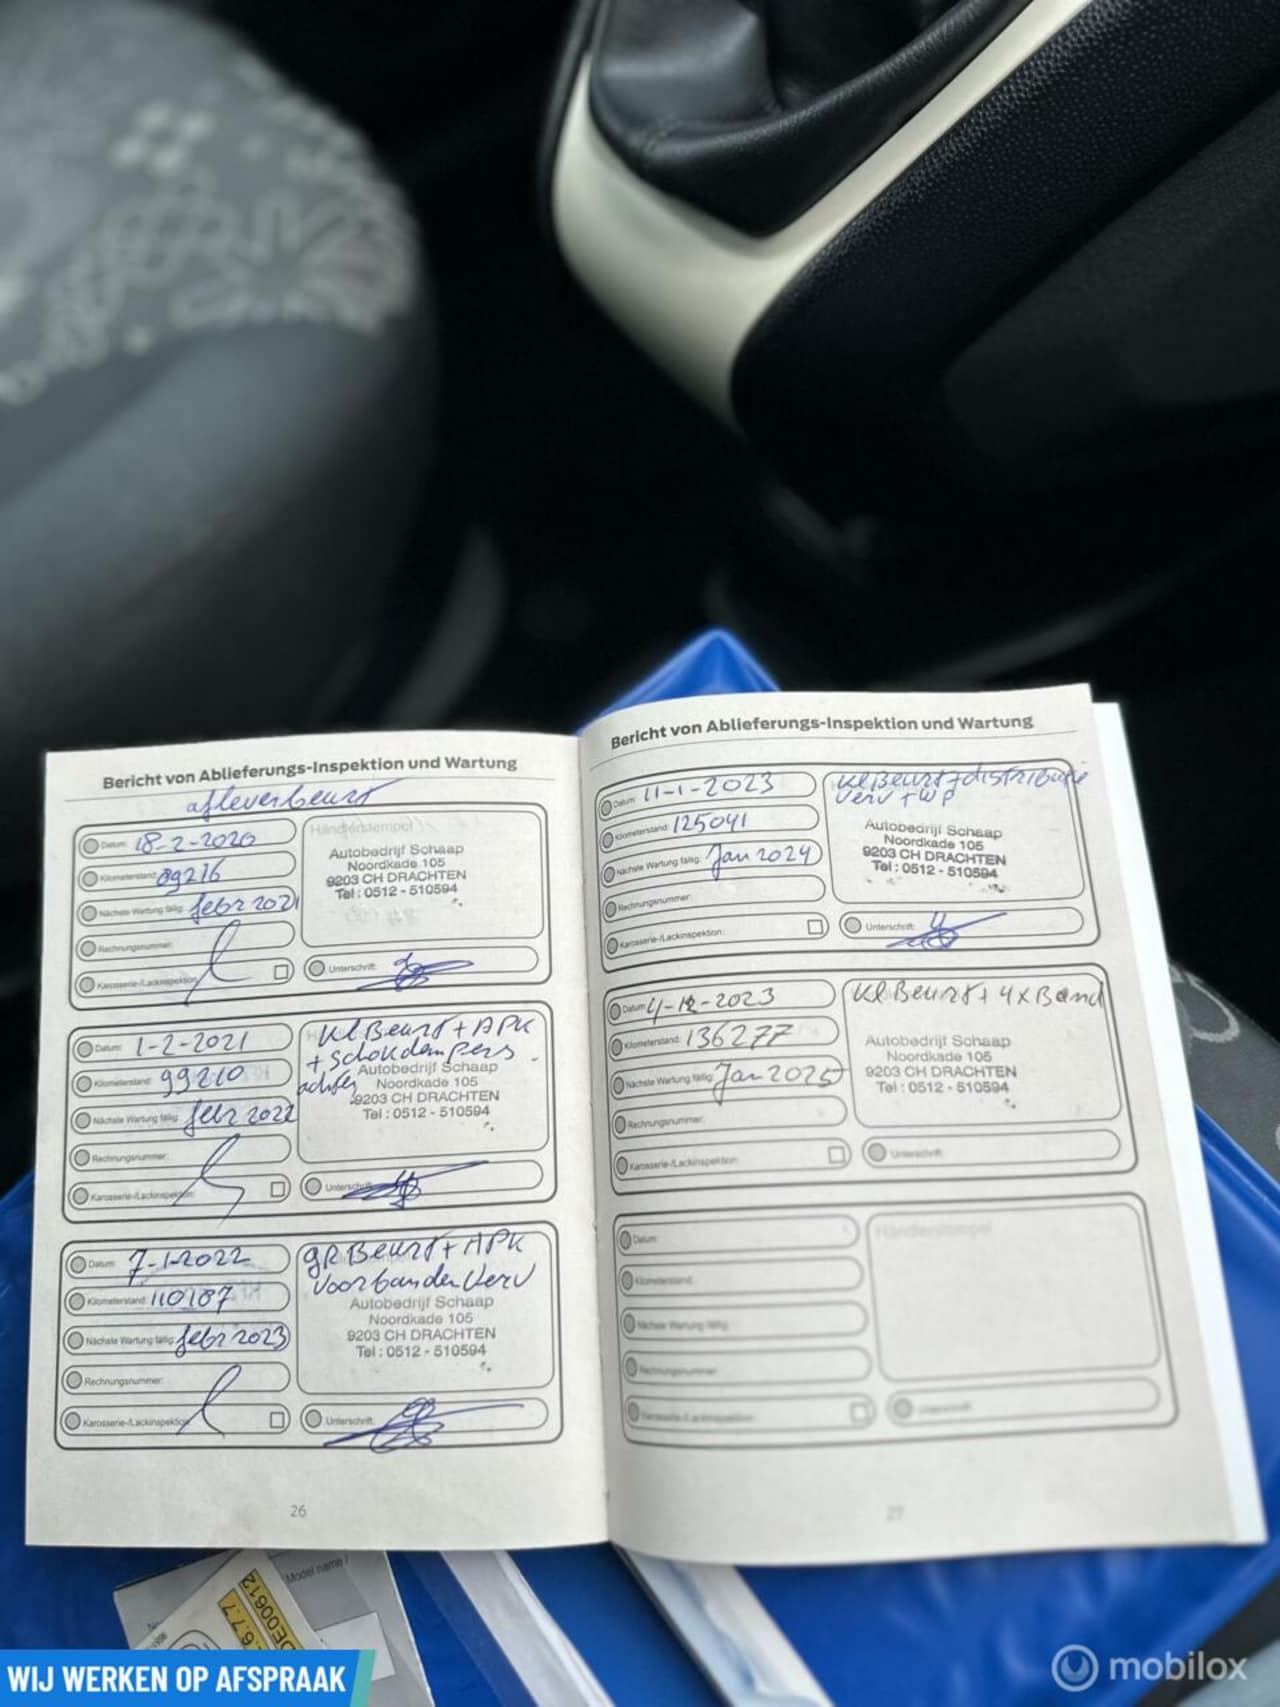 Bericht von Ablieferungs-Inspektion und Wartung
afleverbeurt
Datum: 18-2-2020
Kilometerstand: 89216
Nächste Wartung fällig: febr 2021
Rechnungsnummer:
Karosserie-/Lackinspektion:
Händlerstempel
Autobedrijf Schaap
Noordkade 105
9203 CH DRACHTEN
Tel : 0512 - 510594
Unterschrift:
Datum: 1-2-2021
Kilometerstand: 99210
Nächste Wartung fällig: febr 2022
Rechnungsnummer:
Karosserie-/Lackinspektion:
Kl Beurt + APK
+ schokdempers
achter
Autobedrijf Schaap
Noordkade 105
9203 CH DRACHTEN
Tel : 0512 - 510594
Unterschrift:
Datum: 7-1-2022
Kilometerstand: 110187
Nächste Wartung fällig: febr 2023
Rechnungsnummer:
Karosserie-/Lackinspektion:
gR Beurt + APK
Voorbanden Verv
Autobedrijf Schaap
Noordkade 105
9203 CH DRACHTEN
Tel : 0512 - 510594
Unterschrift:
26
Bericht von Ablieferungs-Inspektion und Wartung
Datum: 11-1-2023
Kilometerstand: 125041
Nächste Wartung fällig: Jan 2024
Rechnungsnummer:
Karosserie-/Lackinspektion:
Kl Beurt + distributie
Verv + WP
Autobedrijf Schaap
Noordkade 105
9203 CH DRACHTEN
Tel : 0512 - 510594
Unterschrift:
Datum: 4-12-2023
Kilometerstand: 136277
Nächste Wartung fällig: Jan 2025
Rechnungsnummer:
Karosserie-/Lackinspektion:
Kl Beurt + 4x Band
Autobedrijf Schaap
Noordkade 105
9203 CH DRACHTEN
Tel : 0512 - 510594
Unterschrift:
Datum:
Kilometerstand:
Nächste Wartung fällig:
Rechnungsnummer:
Karosserie-/Lackinspektion:
Händlerstempel
Unterschrift:
27
Model name /
DE00612
6.7.7
WIJ WERKEN OP AFSPRAAK
mobilox